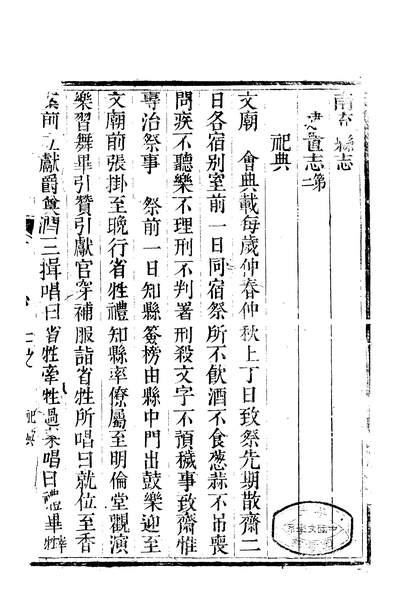 南 縣志
建置志 第二
祀典
文廟 會典載每歲仲春仲秋上丁日致祭先期散齋二
日各宿別室前一日同宿祭所不飲酒不食葱蒜不吊喪
問疾不聽樂不理刑不判署刑殺文字不預穢事致齋惟
專治祭事 祭前一日知縣簽榜由縣中門出鼓樂迎至
文廟前張掛至晚行省牲禮知縣率僚屬至明倫堂觀演
樂習舞畢引贊引獻官穿補服詣省牲所唱曰就位至香
案前立獻爵奠酒三揖唱曰省牲牽牲過 唱曰禮畢 牲
祀典